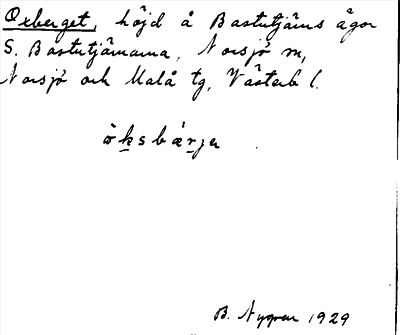 Oxberget, höjd å Bastutjärns ägor
S. Bastutjärnarna, Norsjö sn,
Norsjö och Malå tg, Västerb l.
öksbärje
B. Nygren 1929